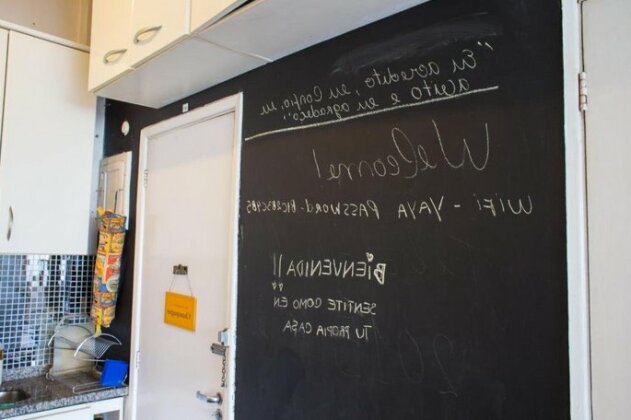 "Eu acredito, eu Confio, eu
aceito e eu agradeço".
Welcome!
WiFi - YAYA PASSWORD-
BIENVENIDA!!
SENTITE COMO EN
TU PROPIA CASA